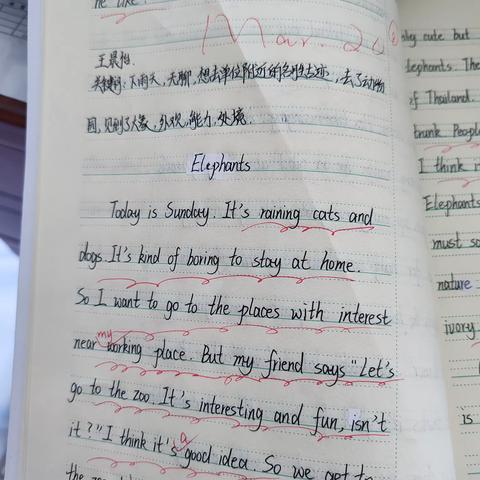 he like!
Mar. 20
王晨怡.
关键词:下雨天,无聊,想去单位附近的名胜古迹,去了动物
园,见到了大象,外观,能力,处境.
Elephants
Today is Sunday. It's raining cats and
dogs. It's kind of boring to stay at home.
So I want to go to the places with interest
my
near working place. But my friend says "Let's
go to the zoo. It's interesting and fun, isn't
it?" I think it's a good idea. So we get to
the zoo
cute but
elephants. The
of Thailand.
trunk. People
I think i
Elephants
must so
nature
ivory
is